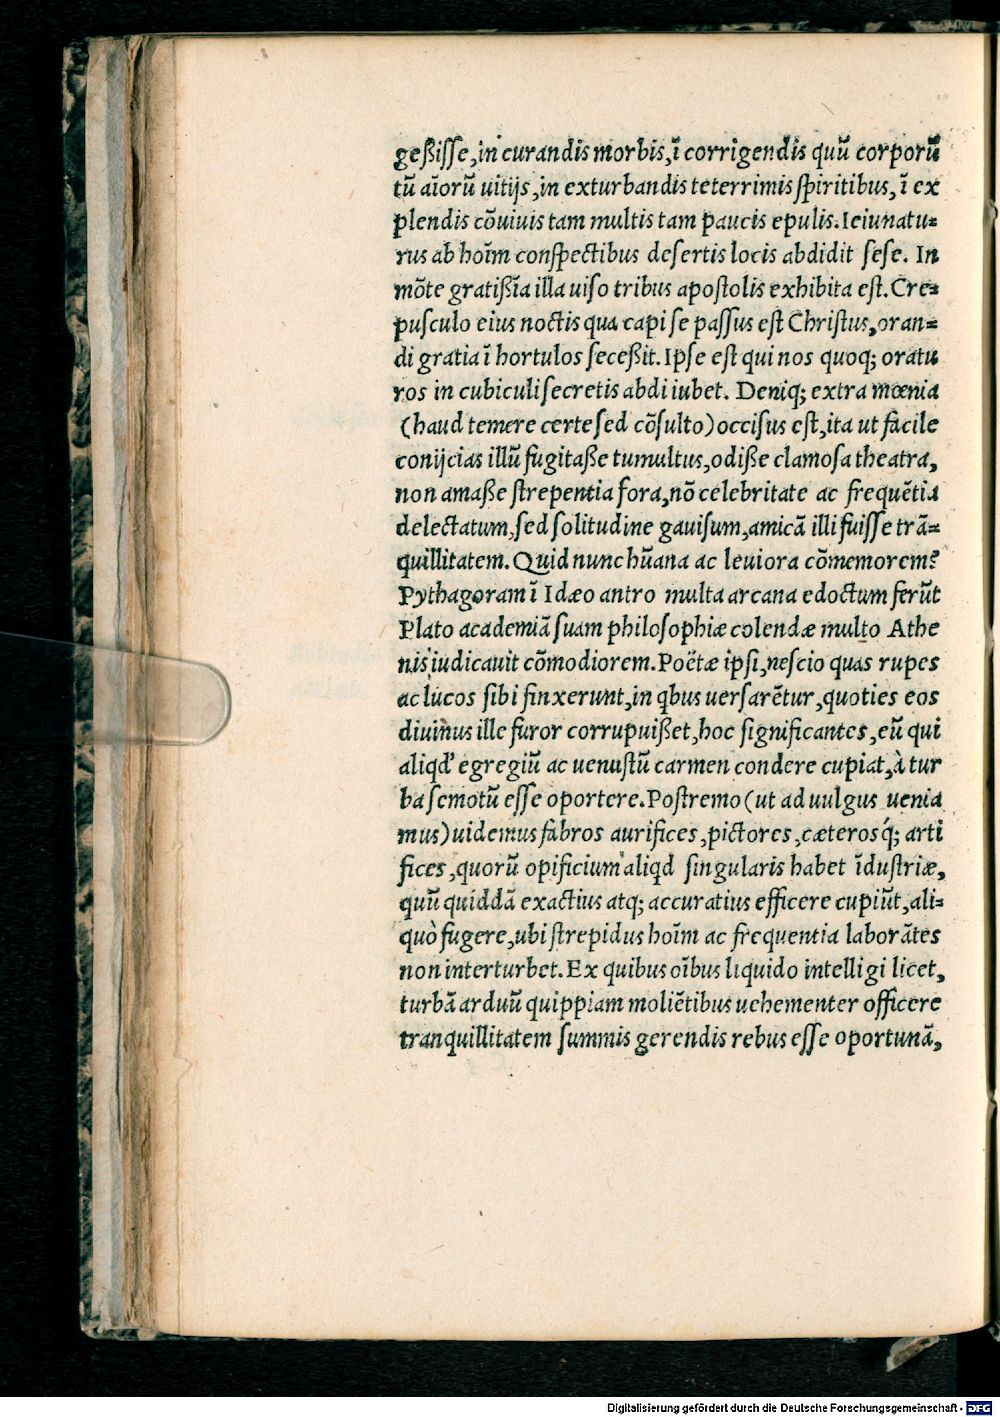 geßiſſe, in curandis morbis, ĩ corrigendis quũ corporũ
tũ aĩorũ uitijs, in exturbandis teterrimis ſpiritibus, ĩ ex
plendis cõuiuis tam multis tam paucis epulis. Ieiunatu-
rus ab hoĩm conſpectibus deſertis locis abdidit ſeſe. In
mõte gratißĩa illa uiſo tribus apoſtolis exhibita eſt. Cre-
puſculo eius noctis qua capi ſe paſſus eſt Chriſtus, oran-
di gratia ĩ hortulos ſeceßit. Ipſe eſt qui nos quoq; oratu
ros in cubiculi ſecretis abdi iubet. Deniq; extra mœnia
(haud temere certe sed cõſulto) occiſus eſt, ita ut facile
conijcias illũ fugitaße tumultus, odiße clamoſa theatra,
non amaße ſtrepentia fora, nõ celebritate ac frequẽtia
delectatum, ſed ſolitudine gauiſum, amicã illi fuiſſe trã-
quillitatem. Quid nunc hũana ac leuiora cõmemorem?
Pythagoram ĩ Idæo antro multa arcana edoctum ferũt
Plato academiã ſuam philoſophiæ colendæ multo Athe
nis iudicauit cõmodiorem. Poëtæ ipſi, neſcio quas rupes
ac lucos ſibi finxerunt, in qbus uerſarẽtur, quoties eos
diuinus ille furor corrupuißet, hoc ſignificantes, eũ qui
aliqd' egregiũ ac uenuſtũ carmen condere cupiat, à tur
ba ſemotũ eſſe oportere. Poſtremo (ut ad uulgus uenia
mus) uidemus fabros aurifices, pictores, cæterosq́; arti
fices, quorũ opificium aliqd ſingularis habet ĩduſtriæ,
quũ quiddã exactius atq; accuratius efficere cupiũt, ali-
quò fugere, ubi ſtrepidus hoĩm ac frequentia laborãtes
non interturbet. Ex quibus oĩbus liquido intelligi licet,
turbã arduũ quippiam moliẽtibus uehementer officere
tranquillitatem ſummis gerendis rebus eſſe oportunã,
Digitalisierung gefördert durch die Deutsche Forschungsgemeinschaft - DFG